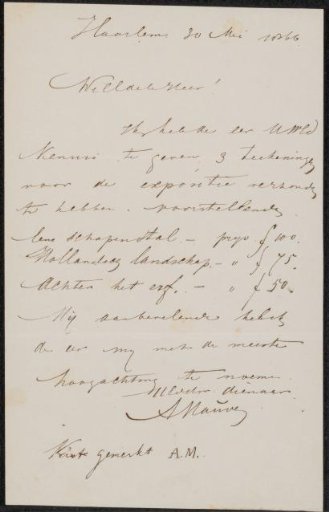 Haarlem 20 Mei 1866
WelEdele Heer!
Ik heb de eer UWEd
Kennis te geven, 3 teekeningen
voor de expositie verzonden
te hebben. voorstellende
Een schapenstal. — prijs f 100.
Hollandsch landschap. — " f 75.
Achter het erf. — " f 50.
Mij aanbevelende heb ik
de eer mij met de meeste
hoogachting te noemen
UEd dienaar
A Mauve
Kist gemerkt A.M.